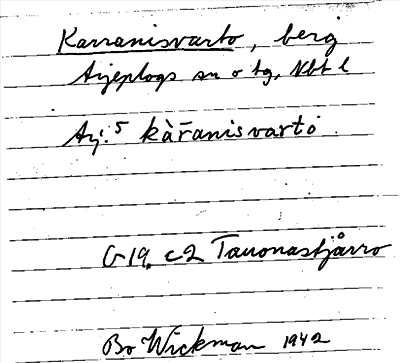 Karranisvarto, berg
Arjeplogs sn o tg, Nbt l
Arj. 5 kàr̄anisvarto
G 19, c2 Tauonastjårro
Bo Wickman 1942